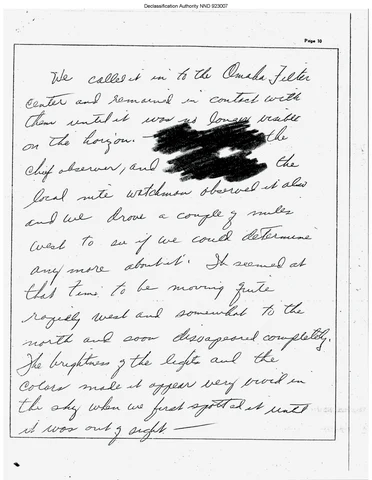 Declassification Authority NND 923007
Page 10
We called it in to the Omaha Filter
center and remained in contact with
them until it was no longer visible
on the horizon. — the
chief observer, and the
local nite watchman observed it also
and we drove a couple of miles
west to see if we could determine
any more about it. It seemed at
that time to be moving quite
rapidly west and somewhat to the
north and soon dissapeared completely.
The brightness of the lights and the
colors made it appear very vivid in
the sky when we first spotted it until
it was out of sight —